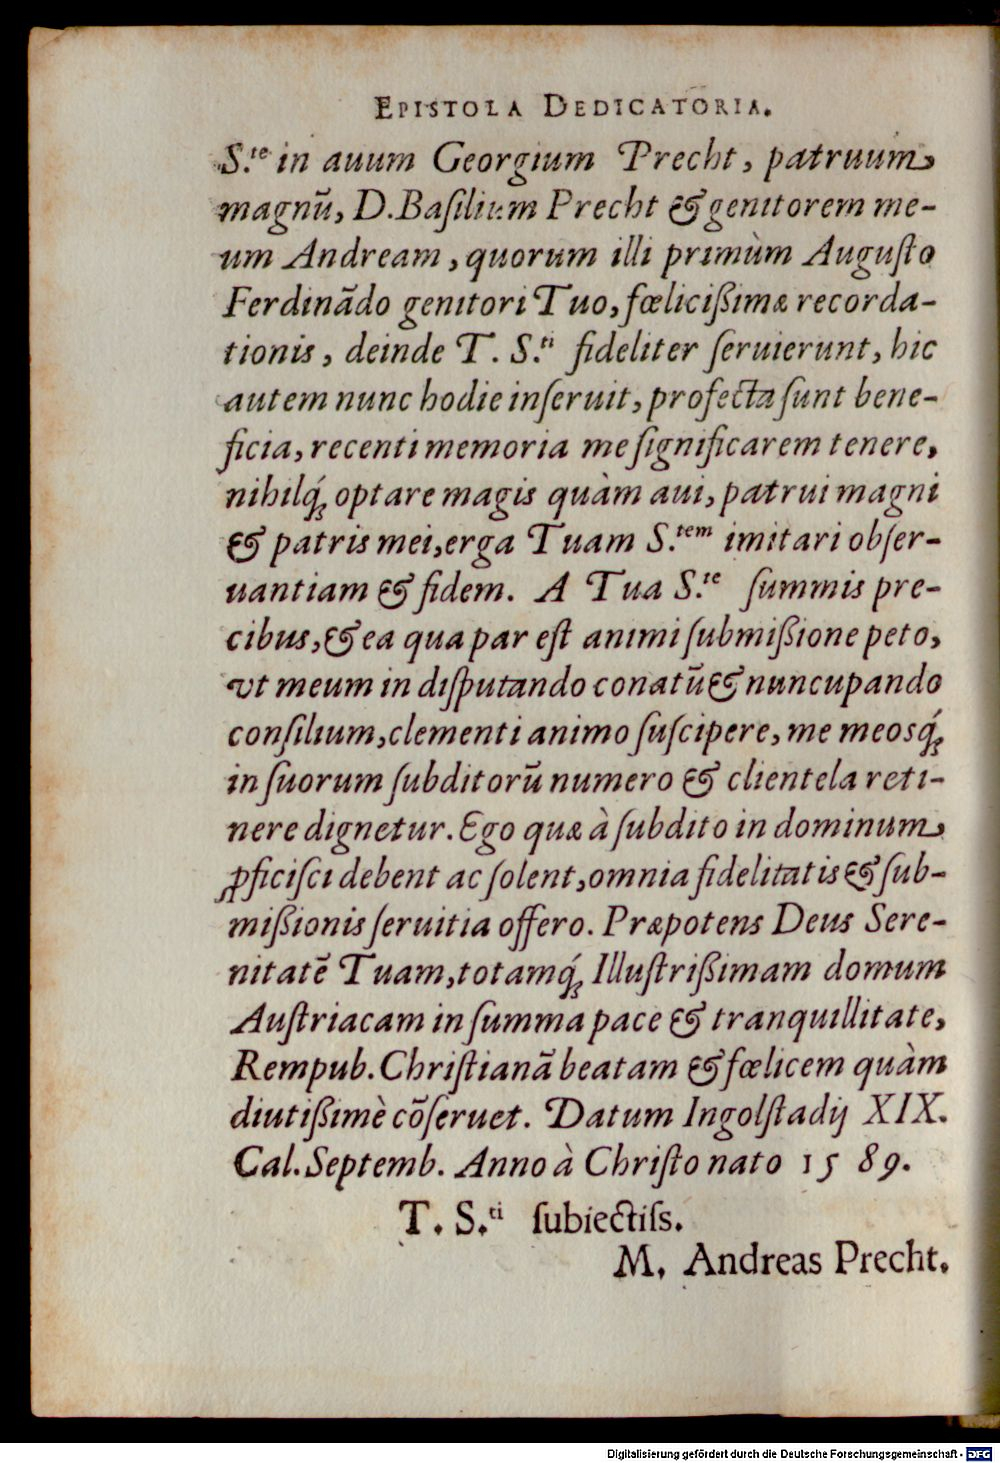 EPISTOLA DEDICATORIA.
S.te in auum Georgium Precht, patruum
magnũ, D. Baſilium Precht & genitorem me-
um Andream, quorum illi primùm Auguſto
Ferdinãdo genitori Tuo, fœlicißimæ recorda-
tionis, deinde T. S.ti fideliter ſeruierunt, hic
autem nunc hodie inſeruit, profecta ſunt bene-
ficia, recenti memoria me ſignificarem tenere,
nihilq́ꝫ optare magis quàm aui, patrui magni
& patris mei, erga Tuam S.tem imitari obſer-
uantiam & fidem. A Tua S.te ſummis pre-
cibus, & ea qua par eſt animi ſubmißione peto,
vt meum in diſputando conatũ & nuncupando
conſilium, clementi animo ſuſcipere, me meosq́ꝫ
in ſuorum ſubditorũ numero & clientela reti-
nere dignetur. Ego quæ à ſubdito in dominum
ꝓficiſci debent ac ſolent, omnia fidelitatis & ſub-
mißionis ſeruitia offero. Præpotens Deus Sere-
nitatẽ Tuam, totamq́ꝫ Illuſtrißimam domum
Auſtriacam in ſumma pace & tranquillitate,
Rempub. Chriſtianã beatam & fœlicem quàm
diutißimè cõſeruet. Datum Ingolſtadij XIX.
Cal. Septemb. Anno à Chriſto nato 1589.
T. S.ti ſubiectiſs.
M. Andreas Precht.
Digitalisierung gefördert durch die Deutsche Forschungsgemeinschaft - DFG